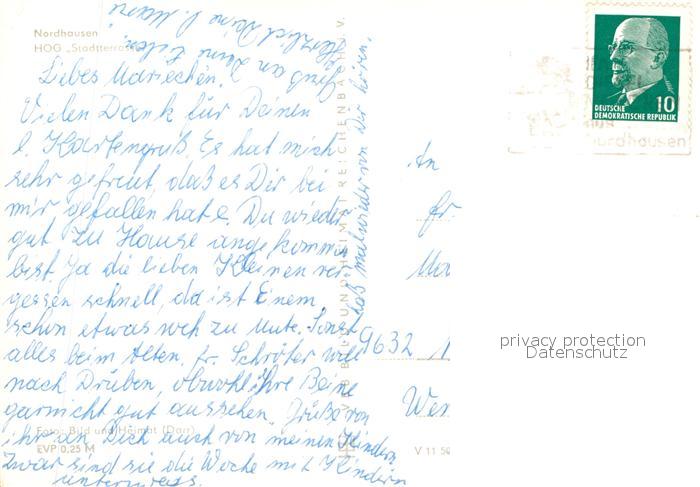 Nordhausen
HOG „Stadtterrasse"
Liebes Mariechen.
Vielen Dank für Deinen
l. Kartengruß. Es hat mich
sehr gefreut, daß es Dir bei
mir gefallen hat u. Du wieder
gut zu Hause angekommen
bist. Ja die lieben Kleinen ver-
gessen schnell, da ist Einem
schon etwas weh zu Mute. Sonst
alles beim Alten. Fr. Schröter will
nach Drüben, obwohl ihre Beine
garnicht gut aussehen. Grüße von
ihr an Dich auch von meinen Kindern
Zwar sind sie die Woche mit Kindern
unterwegs.
laß mal wieder von Dir hören.
Gruß an Deine
Herzlichst Deine
VEB BILD UND HEIMAT REICHENBACH I. V.
Foto: Bild und Heimat (Darr)
EVP 0,25 M
V 11 50
An
Fr.
Ma
9632
Wer
DEUTSCHE
DEMOKRATISCHE REPUBLIK
10
Nordhausen
privacy protection
Datenschutz